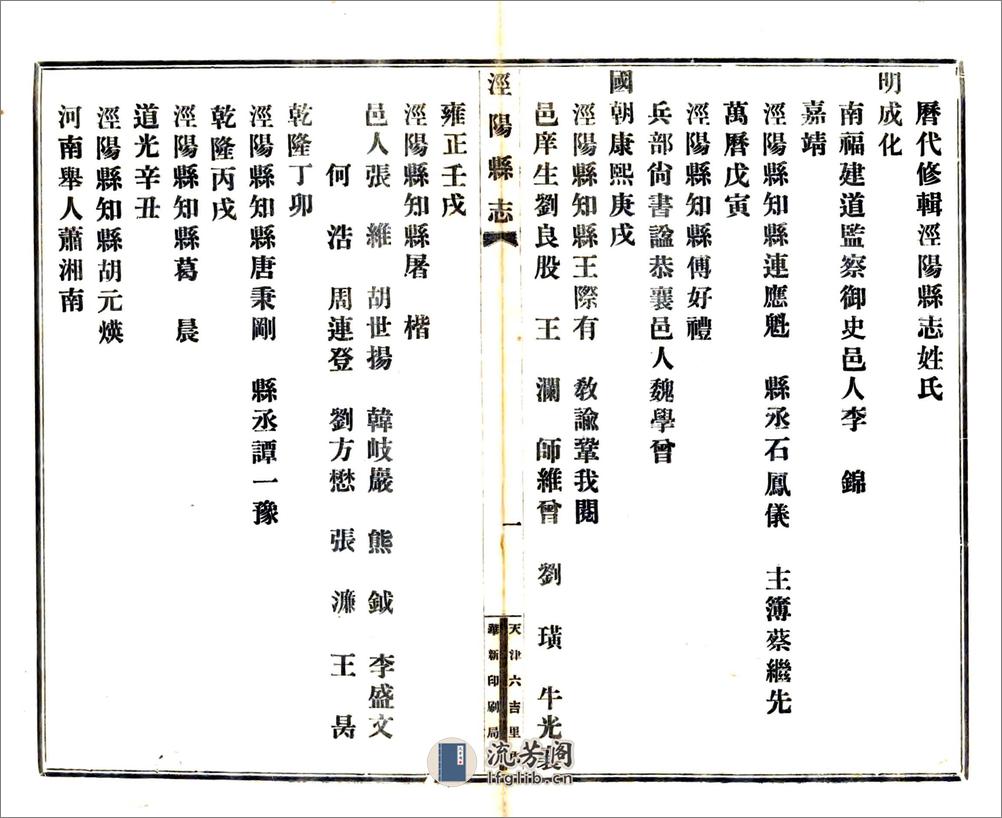 曆代修輯涇陽縣志姓氏
明成化
南福建道監察御史邑人李　錦
嘉靖
涇陽縣知縣連應魁　縣丞石鳳儀　主簿蔡繼先
萬曆戊寅
涇陽縣知縣傅好禮
兵部尙書諡恭襄邑人魏學曾
國朝康熙庚戌
涇陽縣知縣王際有　敎諭鞏我閱
邑庠生劉良股　王　瀾　師維曾　劉　璜　牛光
涇陽縣志
一
天津六吉里
華新印刷局
雍正壬戌
涇陽縣知縣屠　楷
邑人張　維　胡世揚　韓岐巖　熊　鉞　李盛文
何　浩　周連登　劉方懋　張　濂　王　昺
乾隆丁卯
涇陽縣知縣唐秉剛　縣丞譚一豫
乾隆丙戌
涇陽縣知縣葛　晨
道光辛丑
涇陽縣知縣胡元煐
河南舉人蕭湘南
流芳阁
lfglib.cn